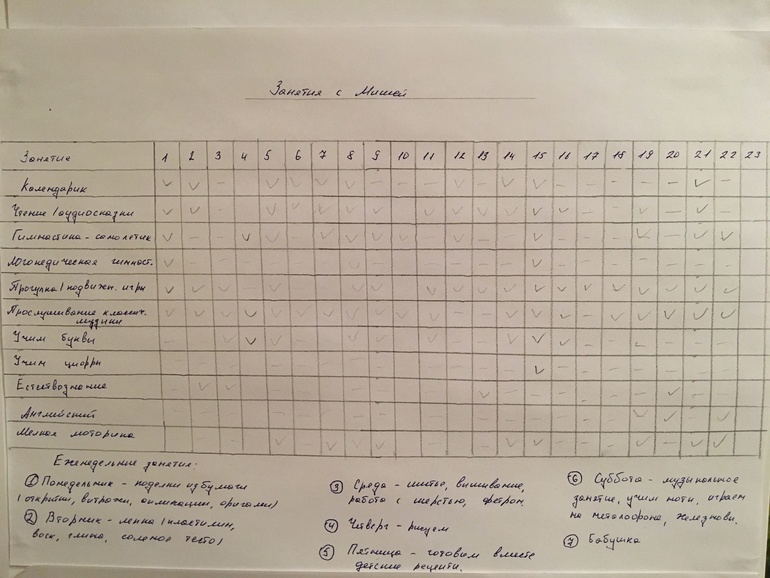 Занятия с Мишей
Занятие 1 2 3 4 5 6 7 8 9 10 11 12 13 14 15 16 17 18 19 20 21 22 23
Календарик
Чтение / аудиосказки
Гимнастика - самолетик
Логопедическая гимнаст.
Прогулка / подвижн. игры
Прослушивание классич.
музыки
Учим буквы
Учим цифры
Естествознание
Английский
Мелкая моторика
Еженедельные занятия:
① Понедельник - поделки из бумаги
(открытки, витражи, аппликации, оригами)
② Вторник - лепка (пластилин,
воск, глина, соленое тесто)
③ Среда - шитье, вышивание,
работа с шерстью, фетром
④ Четверг - рисуем
⑤ Пятница - готовим вместе
детские рецепты.
⑥ Суббота - музыкальное
занятие, учим ноты, играем
на металлофоне,
⑦ Бабушка